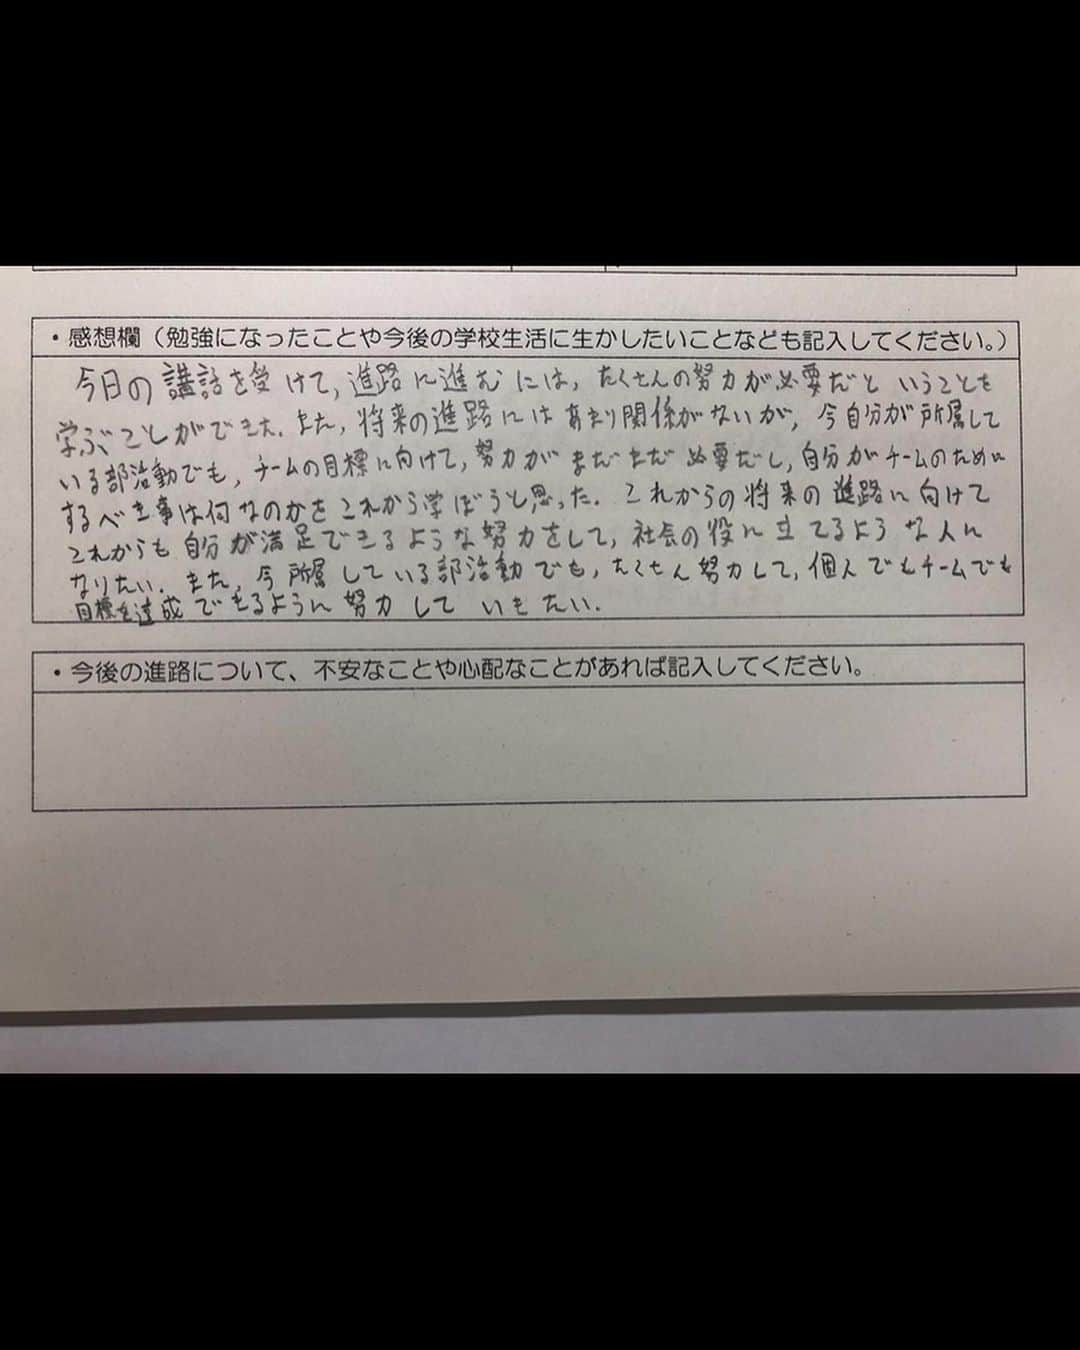 ・感想欄（勉強になったことや今後の学校生活に生かしたいことなども記入してください。）
今日の講話を受けて,進路に進むには,たくさんの努力が必要だということを
学ぶことができた.また,将来の進路にはあまり関係がないが,今自分が所属して
いる部活動でも,チームの目標に向けて,努力がまだまだ必要だし,自分がチームのために
するべき事は何なのかをこれから学ぼうと思った.これからの将来の進路に向けて
これからも自分が満足できるような努力をして,社会の役に立てるような人に
なりたい.また,今所属している部活動でも,たくさん努力して,個人でもチームでも
目標を達成できるように努力していきたい.
・今後の進路について、不安なことや心配なことがあれば記入してください。